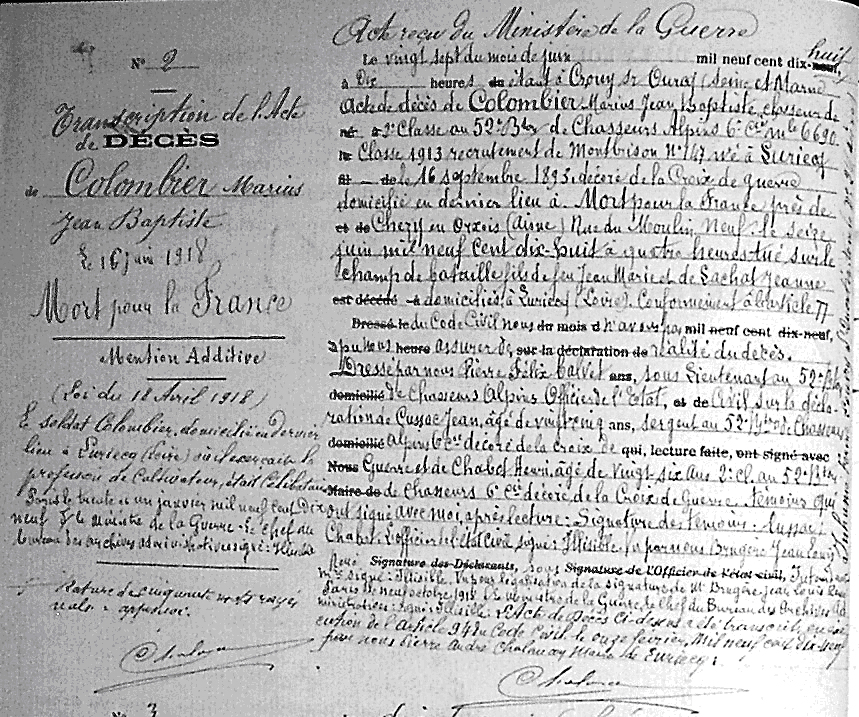 N° 2
Transcription de l'Acte
de DÉCÈS
de Colombier Marius
Jean Baptiste
Le 16 juin 1918
Mort pour la France
Mention Additive
(Loi du 18 Avril 1918)
Le soldat Colombier, domicilié en dernier
lieu à Luriecq (Loire) où il exerçait la
profession de Cultivateur, était Célibataire
Paris le trente et un janvier mil neuf cent dix
neuf P. le Ministre de la Guerre. Le Chef du
bureau des archives administratives signé: Illisible
Rature de cinquante mots rayés
nuls = approuvée.
Chalancon
Acte reçu du Ministère de la Guerre
Le vingt sept du mois de juin mil neuf cent dix-neuf, huit
à Dix heures du étant à Crouy sr Ourcq (Seine et Marne
Acte de décès de Colombier Marius Jean Baptiste, chasseur de
né à 2e Classe au 52e Bton de Chasseurs Alpins 6e Cie Mle 6690.
le Classe 1913 recrutement de Montbrison N° 147 né à Luriecq
de le 16 septembre 1893. décoré de la Croix de guerre
domicilié en dernier lieu à Mort pour la France près de
et de Chézy en Orxois (Aisne) Rue du Moulin Neuf. le seize
juin mil neuf cent dix-huit à quatre heures tué sur le
champ de bataille fils de feu Jean Marie et de Lachat Jeanne
est décédé à domiciliés à Luriecq (Loire). Conformément à l'article 77
Dressé le du Code Civil nous du mois d n'avons pas mil neuf cent dix-neuf,
à pu nous heure assurer de sur la déclaration de réalité du décès.
Dressé par nous Pierre Félix Calvet ans, sous Lieutenant au 52e Bton
domicilié de Chasseurs Alpins Officier de l'Etat, et de Civil sur la décla-
ration de Cussac Jean, âgé de vingt cinq ans, sergent au 52e Bton de Chasseurs
domicilié Alpins 6e Cie décoré de la croix de qui, lecture faite, ont signé avec
Nous Guerre et de Chabot Henri, âgé de vingt six ans 2e cl. au 52e Bton
Maire de de Chasseurs 6e Cie décoré de la Croix de Guerre. témoins qui
ont signé avec moi, après lecture: Signature des témoins: Cussac:
Chabot: L'officier de l'état Civil, signé: Illisible Vu par nous Brugère Jean Louis
René Signature des Déclarants, sous Signature de l'Officier de l'état civil, Intendant
Mre signé: Illisible. Vu pour légalisation de la signature de Mr Brugère, Jean Louis René
Paris le neuf octobre 1918 Le Ministre de la Guerre, le chef du Bureau des Archives Ad-
ministratives: signé: Illisible: L'Acte de Décès ci-dessus a été transcrit, en exé-
cution de l'Article 94 du Code Civil le onze février, Mil neuf cent dix-neuf
par nous Pierre André Chalancon Maire de Luriecq:
Chalancon
N° 3